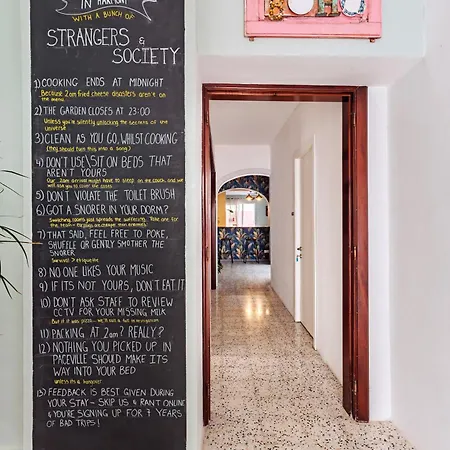 IN HARMONY
WITH A BUNCH OF
STRANGERS &
SOCIETY
1) COOKING ENDS AT MIDNIGHT
Because 2am fried cheese disasters aren't on
the menu.
2) THE GARDEN CLOSES AT 23:00
Unless you're silently unlocking the secrets of the
universe
3) CLEAN AS YOU GO, WHILST COOKING
(they should turn this into a song)
4) DON'T USE\SIT ON BEDS THAT
AREN'T YOURS
Our 2am arrival might have to sleep on the couch, and we
will ask you to cover the costs.
5) DON'T VIOLATE THE TOILET BRUSH
6) GOT A SNORER IN YOUR DORM?
Switching rooms just spreads the suffering. Take one for
the team
7) THAT SAID, FEEL FREE TO POKE,
SHUFFLE OR GENTLY SMOTHER THE
SNORER
Survival > etiquette
8) NO ONE LIKES YOUR MUSIC
9) IF ITS NOT YOURS, DON'T EAT IT
10) DON'T ASK STAFF TO REVIEW
CCTV FOR YOUR MISSING MILK
But if it was pizza - we'll run a full investigation
11) PACKING AT 2am? REALLY?
12) NOTHING YOU PICKED UP IN
PACEVILLE SHOULD MAKE ITS
WAY INTO YOUR BED
unless its a hangover
13) FEEDBACK IS BEST GIVEN DURING
YOUR STAY - SKIP US & RANT ONLINE
& YOU'RE SIGNING UP FOR 7 YEARS
OF BAD TRIPS!